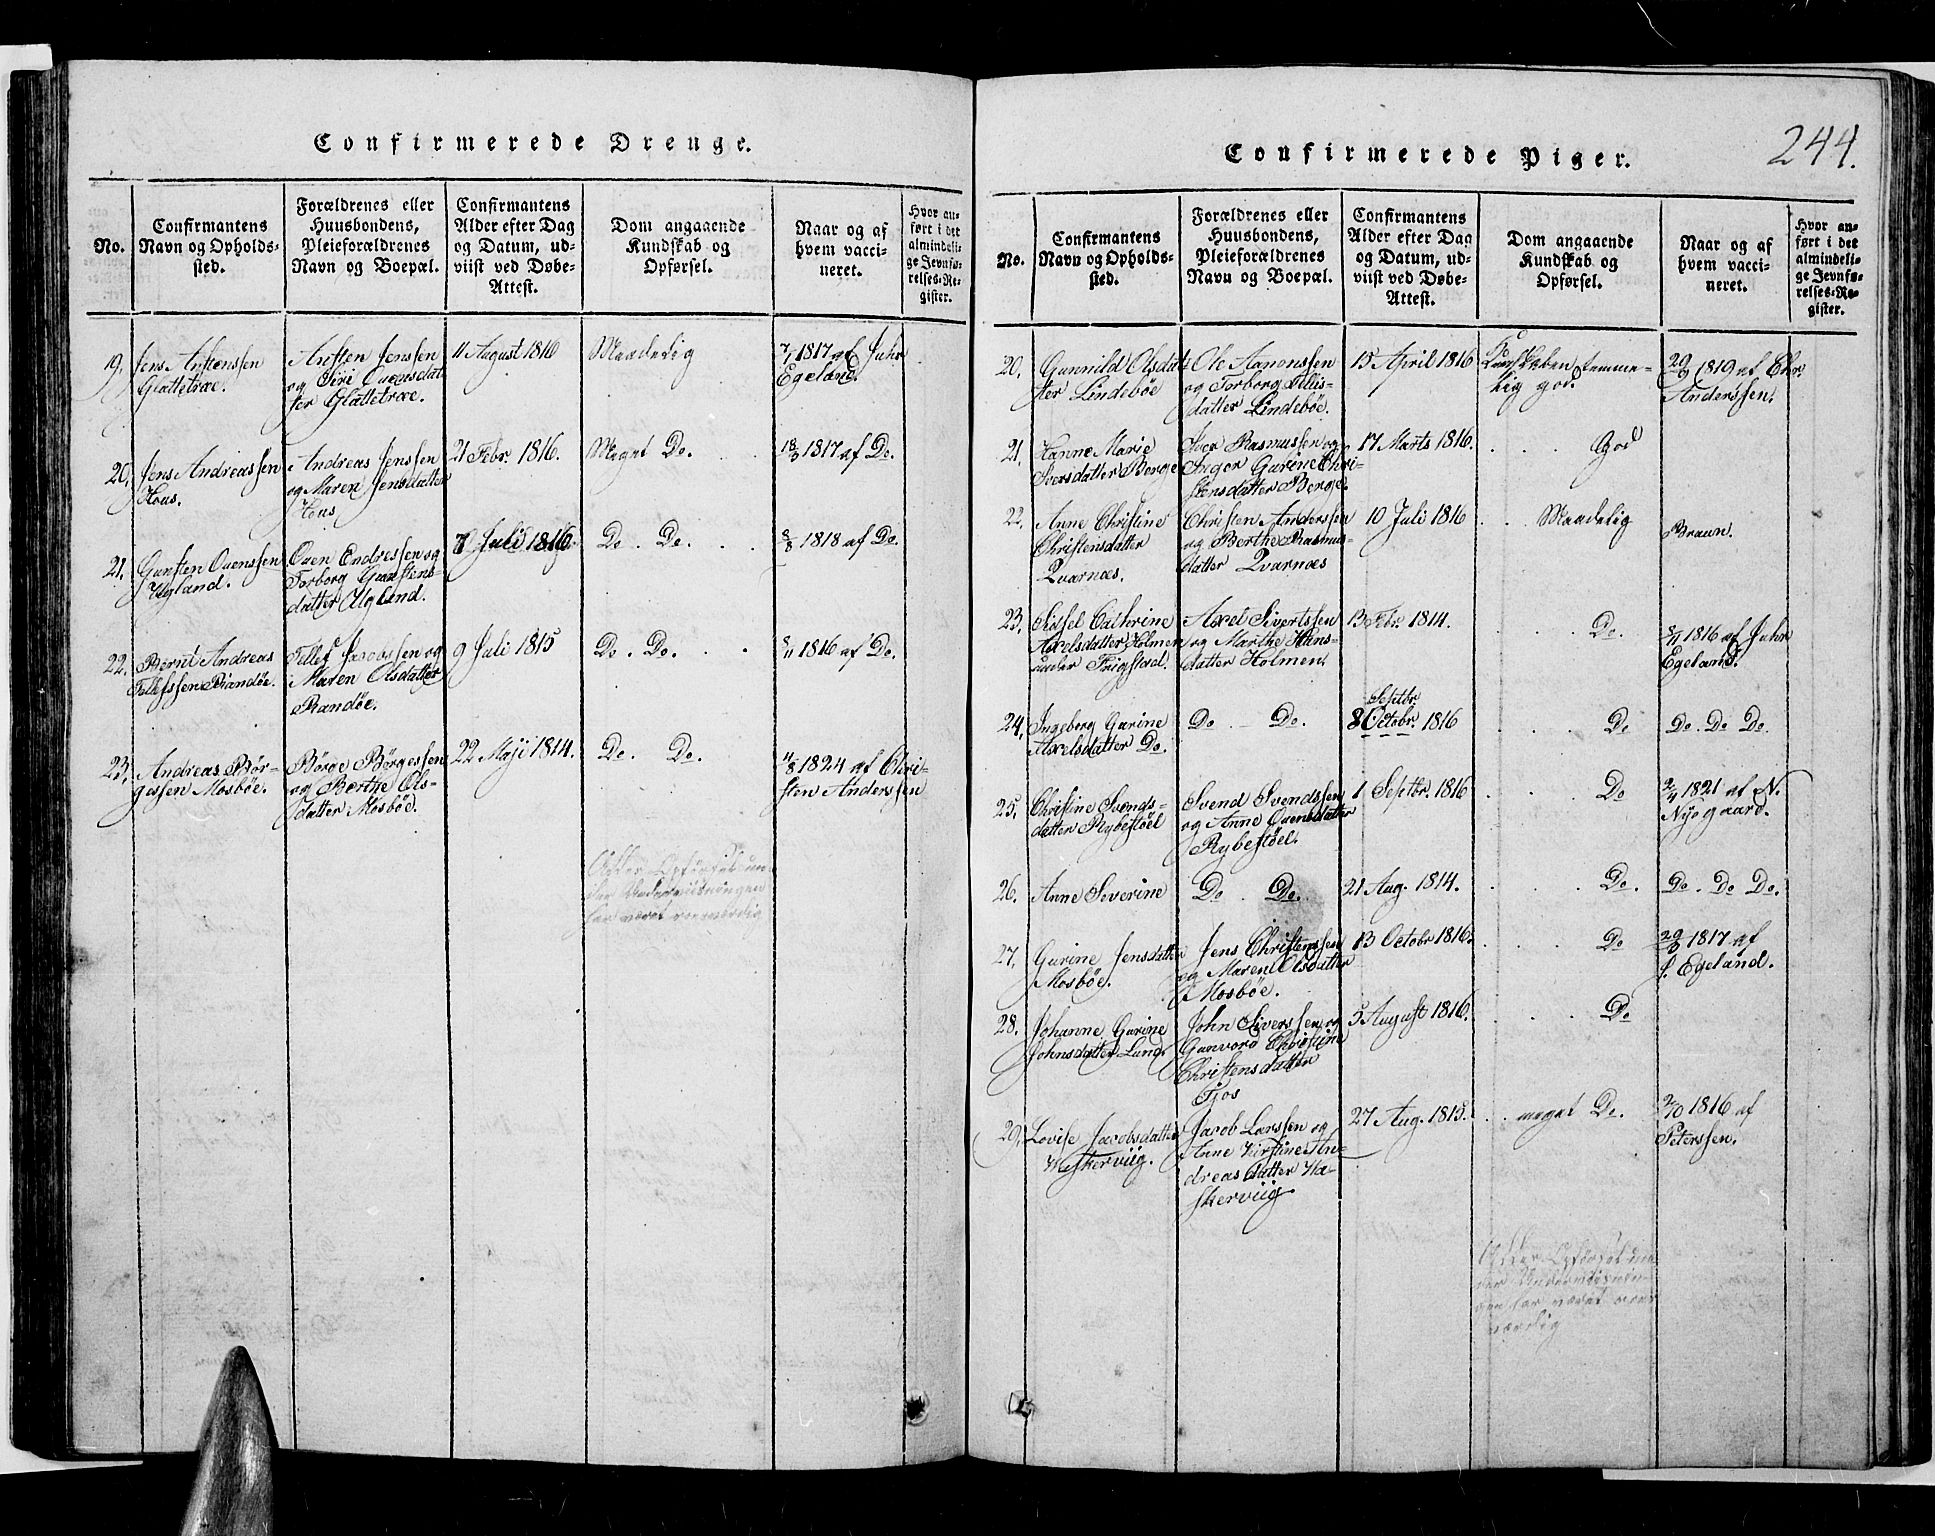 Confirmerede Drenge.
No.
Confirmantens
Navn og Opholds-
sted.
Forældrenes eller
Huusbondens,
Pleieforældrenes
Navn og Boepæl.
Confirmantens
Alder efter Dag
og Datum, ud-
viist ved Døbe-
Attest.
Dom angaaende
Kundskab og
Opførsel.
Naar og af
hvem vacci-
neret.
Hvor an-
ført i det
almindeli-
ge Jevnfø-
relses-Re-
gister.
19.
Jens Anstensen
Glattetræ.
Ansten Jenssen
og Siri Ouensdat-
ter Glattetræ.
11 August 1816
Maadelig
1817 af Juhr
Egeland.
20.
Jens Andreassen
Hous.
Andreas Jenssen
og Maren Jensdatter
Hous
21 Febr. 1816.
Meget Do.
18/3 1817 af Do.
21.
Gunsten Ouenssen
Ugland.
Ouen Endressen og
Torborg Gunstens-
datter Ugland.
Juli 1816.
Do. Do.
8/8 1818 af Do.
22.
Bernt Andreas
Tellefssen Randøe.
Tellef Jacobssen og
Maren Olsdatter
Randøe.
9 Juli 1815
Do. Do.
8/11 1816 af Do.
23.
Andreas Bør-
gessen Mosbøe.
Børge Børgessen
og Berthe Ols-
datter Mosbøe.
22 Maji 1814.
Do. Do.
1824 af Chri-
sten Anderssen
Alles Opførsel un-
der Underviisningen
har været roesværdig
Confirmerede Piger.
244.
No.
Confirmantens
Navn og Opholds-
sted.
Forældrenes eller
Huusbondens,
Pleieforældrenes
Navn og Boepæl.
Confirmantens
Alder efter Dag
og Datum, ud-
viist ved Døbe-
Attest.
Dom angaaende
Kundskab og
Opførsel.
Naar og af
hvem vacci-
neret.
Hvor an-
ført i det
almindeli-
ge Jevnfø-
relses-Re-
gister.
20.
Gunnild Olsdat-
ter Lindebøe
Ole Aanonssen
og Torborg Tellis-
datter Lindebøe.
15 April 1816
Kundskaben temme-
lig god.
29/9 1819 af Chr.
Anderssen.
21.
Hanne Marie
Iversdatter Berge
Iver Rasmussen og
Inger Gurine Chri-
stensdatter Berge.
17 Marts 1816.
God
22.
Anne Christine
Christensdatter
Qvarnæs.
Christen Anderssen
og Berthe Rasmus-
datter Qvarnæs
10 Juli 1816
Maadelig
Braun.
23.
Sissel Cathrine
Axelsdatter Holmen
under Frigstad.
Axel Sivertssen
og Marthe Hans-
datter Holmen.
13 Febr. 1814.
Do.
1816 af Juhr
Egeland.
24.
Ingeborg Gurine
Axelsdatter Do.
Do Do.
Septbr.
8 Octobr. 1816
Do
Do. Do Do.
25.
Christine Svends-
datter Rybestøel
Svend Svendssen
og Anne Ouensdatter
Rybestøel.
1 Septbr. 1816
Do
2/4 1821 af N.
Nysgaard.
26.
Anne Severine
Do. Do.
21 Aug. 1814.
Do.
Do. Do Do.
27.
Gurine Jensdatter
Mosbøe.
Jens Christenssen
og Maren Olsdatter
Mosbøe.
13 Octobr 1816.
Do
1817 af
J. Egeland.
28.
Johanne Gurine
Johnsdatter Lund.
John Siverssen og
Gunvord Christine
Christensdatter
Tjos
5 August 1816.
Do
29.
Lovise Jacobsdatter
Weskerviig.
Jacob Larssen og
Anne Kirstine An-
dreasdatter Wa-
skerviig
27 Aug. 1815.
meget Do.
2/10 1816 af
Peterssen.
Alles Opførsel un-
der Underviisnin-
gen har været roes-
værdig